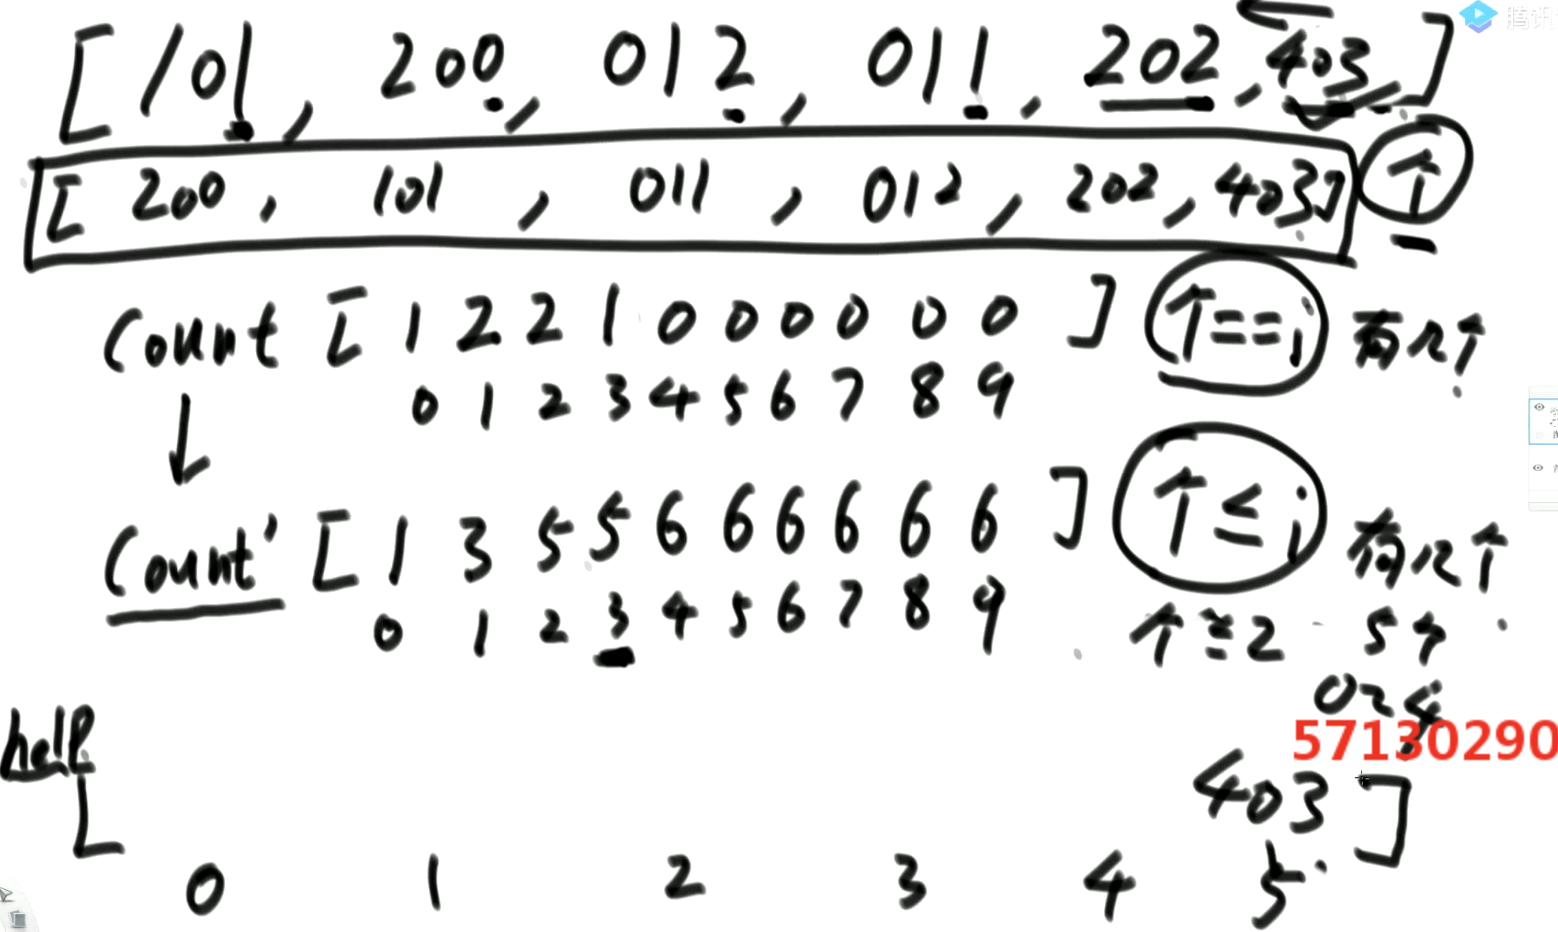 腾讯
[ 101, 200, 012, 011, 202, 403, ]
[ 200, 101, 011, 012, 202, 403] 个
Count [ 1 2 2 1 0 0 0 0 0 0 ] 个==i 有几个
0 1 2 3 4 5 6 7 8 9
Count' [ 1 3 5 5 6 6 6 6 6 6 ] 个≤i 有几个
0 1 2 3 4 5 6 7 8 9 个≤2 5个
0~4
57130290
help [ 403 ]
0 1 2 3 4 5